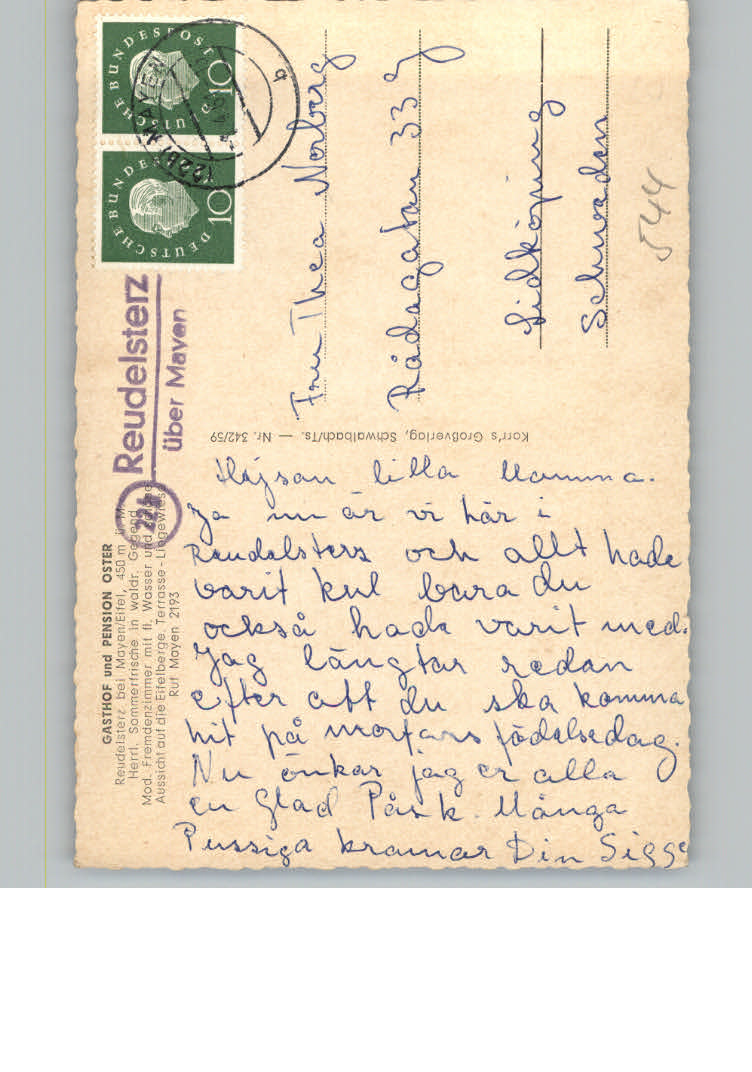 GASTHOF und PENSION OSTER
Reudelsterz bei Mayen/Eifel, 450 m ü. M.
Herrl. Sommerfrische in waldr. Gegend
Mod. Fremdenzimmer mit fl. Wasser und
Aussicht auf die Eifelberge. Terrasse - Liegewiese
Ruf Mayen 2193
22b
Reudelsterz
über Mayen
DEUTSCHE BUNDESPOST
10
DEUTSCHE BUNDESPOST
10
(22b) MAYEN
Korr's Großverlag, Schwalbach/Ts. — Nr. 342/59
Hejsan lilla Mamma.
Ja nu är vi här i
Reudelsterz och allt hade
varit kul bara du
också hade varit med.
Jag längtar redan
efter att du ska komma
hit på morfars födelsedag.
Nu önkar jag er alla
en Glad Påsk. Många
Pussiga kramar Din Sigge
Frau Thea Norberg
Rådagatan 33
Lidköping
Schweden
544